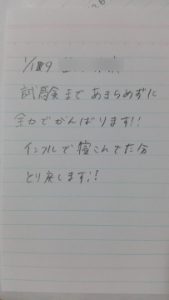 1/19
試験まであきらめずに
全力でがんばります!!
インフルで寝こんでた分
とり戻します!!